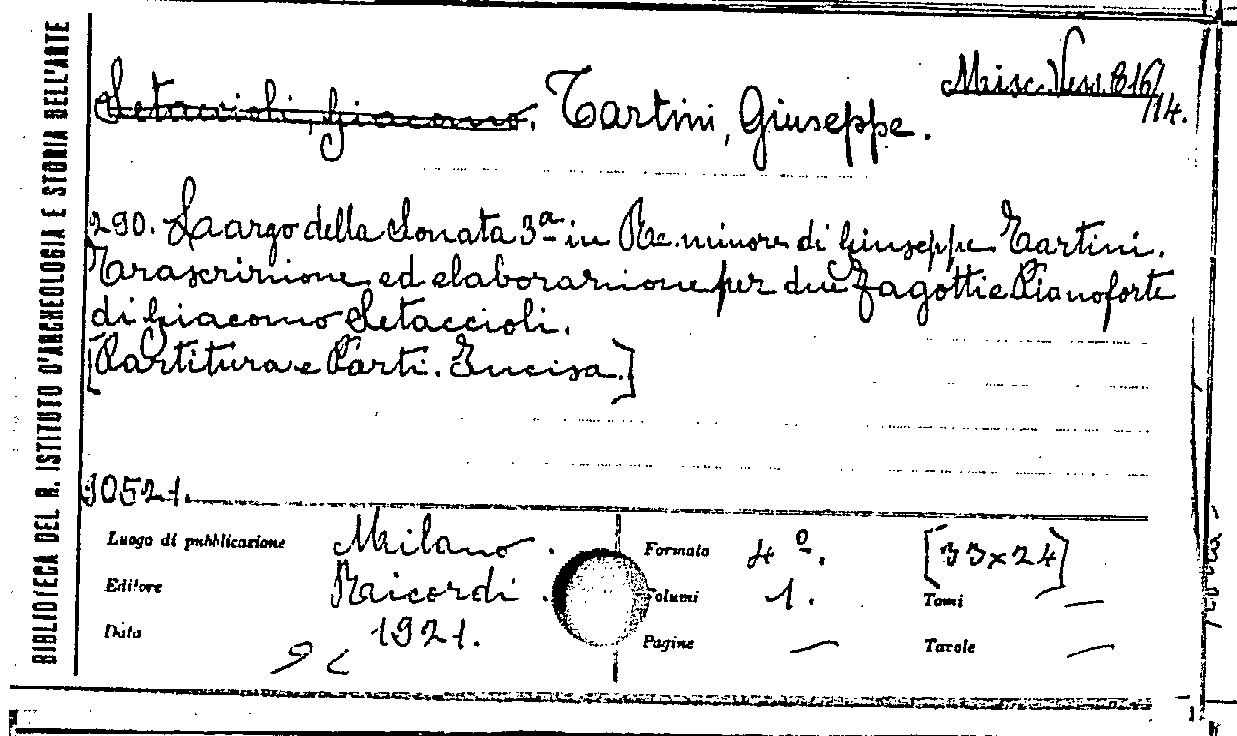 BIBLIOTECA DEL R. ISTITUTO D'ARCHEOLOGIA E STORIA DELL'ARTE
Misc. Vess. 816/14.
Setaccioli, Giacomo. Tartini, Giuseppe.
290. Largo della Sonata 3ª in Re minore di Giuseppe Tartini.
Trascrizione ed elaborazione per due Fagotti e Pianoforte
di Giacomo Setaccioli.
[Partitura e Parti. Incisa.]
10521.
Luogo di pubblicazione Milano. Formato 4º. [33x24]
Editore Ricordi. Volumi 1. Tomi —
Data 1921. Pagine — Tavole —